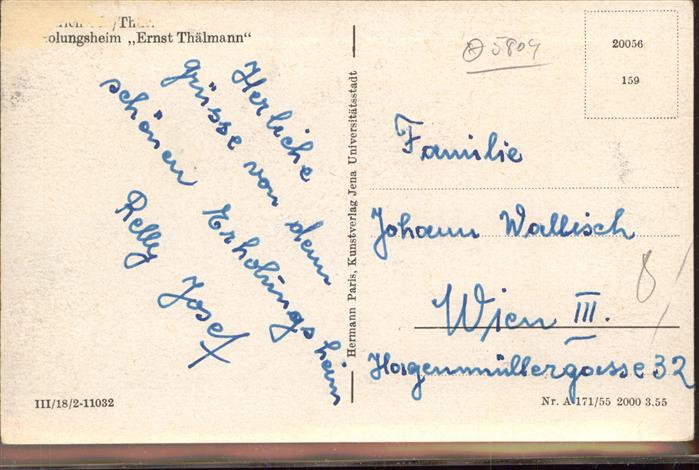 /Thür.
olungsheim „Ernst Thälmann“
Herliche
grüsse von dem
schönen Erholungsheim
Relly Josef
Hermann Paris, Kunstverlag Jena Universitätsstadt
5804
20056
159
Familie
Johann Wallisch
Wien III.
Hagenmüllergasse 32
8/
III/18/2-11032
Nr. A 171/55 2000 3.55